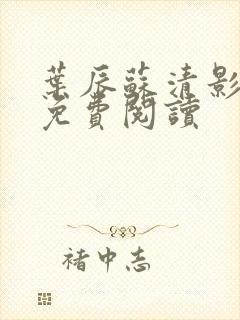 葉辰蘇清影
免費閱讀
褚中志